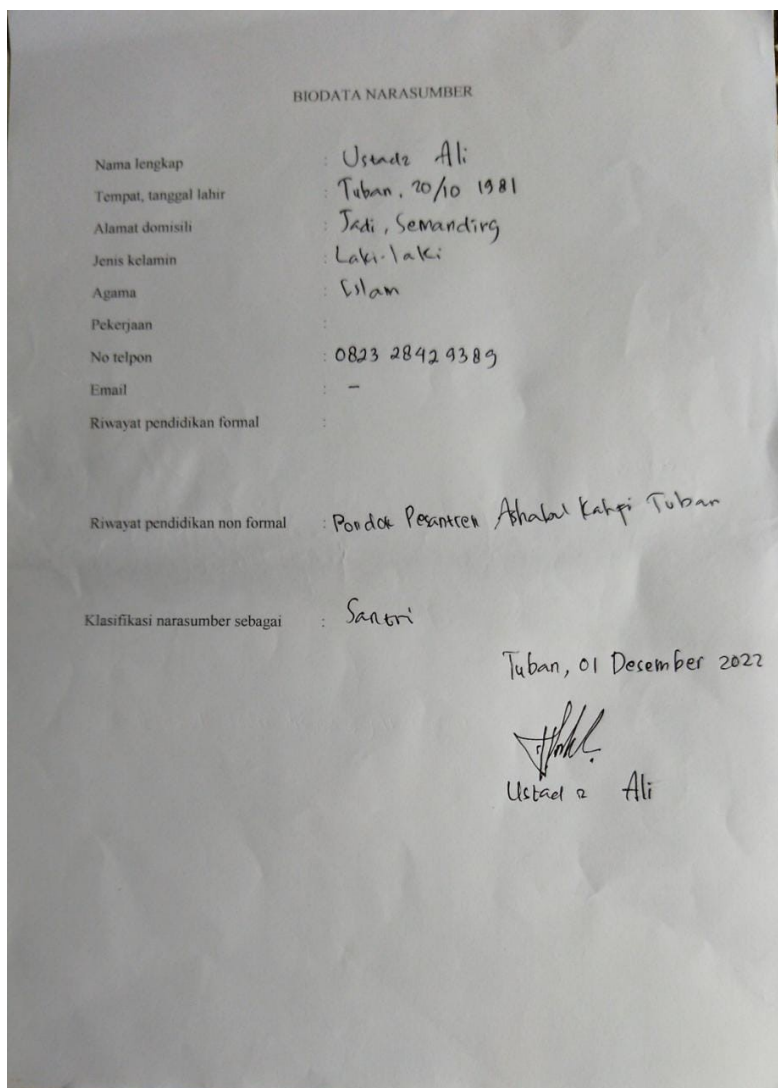 BIODATA NARASUMBER
Nama lengkap : Ustadz Ali
Tempat, tanggal lahir : Tuban, 20/10 1981
Alamat domisili : Jadi, Semanding
Jenis kelamin : Laki-laki
Agama : Islam
Pekerjaan :
No telpon : 0823 2842 9389
Email : -
Riwayat pendidikan formal :
Riwayat pendidikan non formal : Pondok Pesantren Ashabul Kahfi Tuban
Klasifikasi narasumber sebagai : Santri
Tuban, 01 Desember 2022
Ustadz Ali